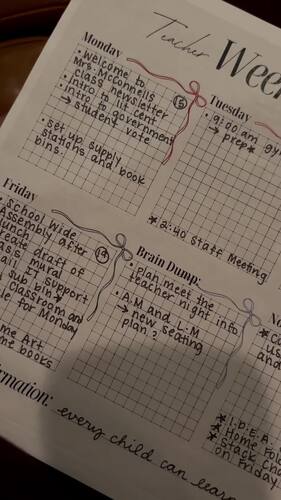 Teacher Week
Monday
• Welcome to
Mrs. McConnells
class newsletter
• intro to lit cent
• intro to government
→ student vote
• set up supply
stations and book
bins.
15
Tuesday
• 9:00 am gy
→ prep*
* 2:40 Staff Meeting
Friday
• School wide
Assembly after
lunch
create draft of
mural
IT support
sub bin
classroom and
for Monday
me Art
me books
19
Brain Dump:
• plan meet the
teacher night info
• A.M and L.M
→ new seating
plan?
No
* Co
us
and
* I.D.E.A.
* Home Fol
* Stack Cha
on Friday
irmation: every child can lear